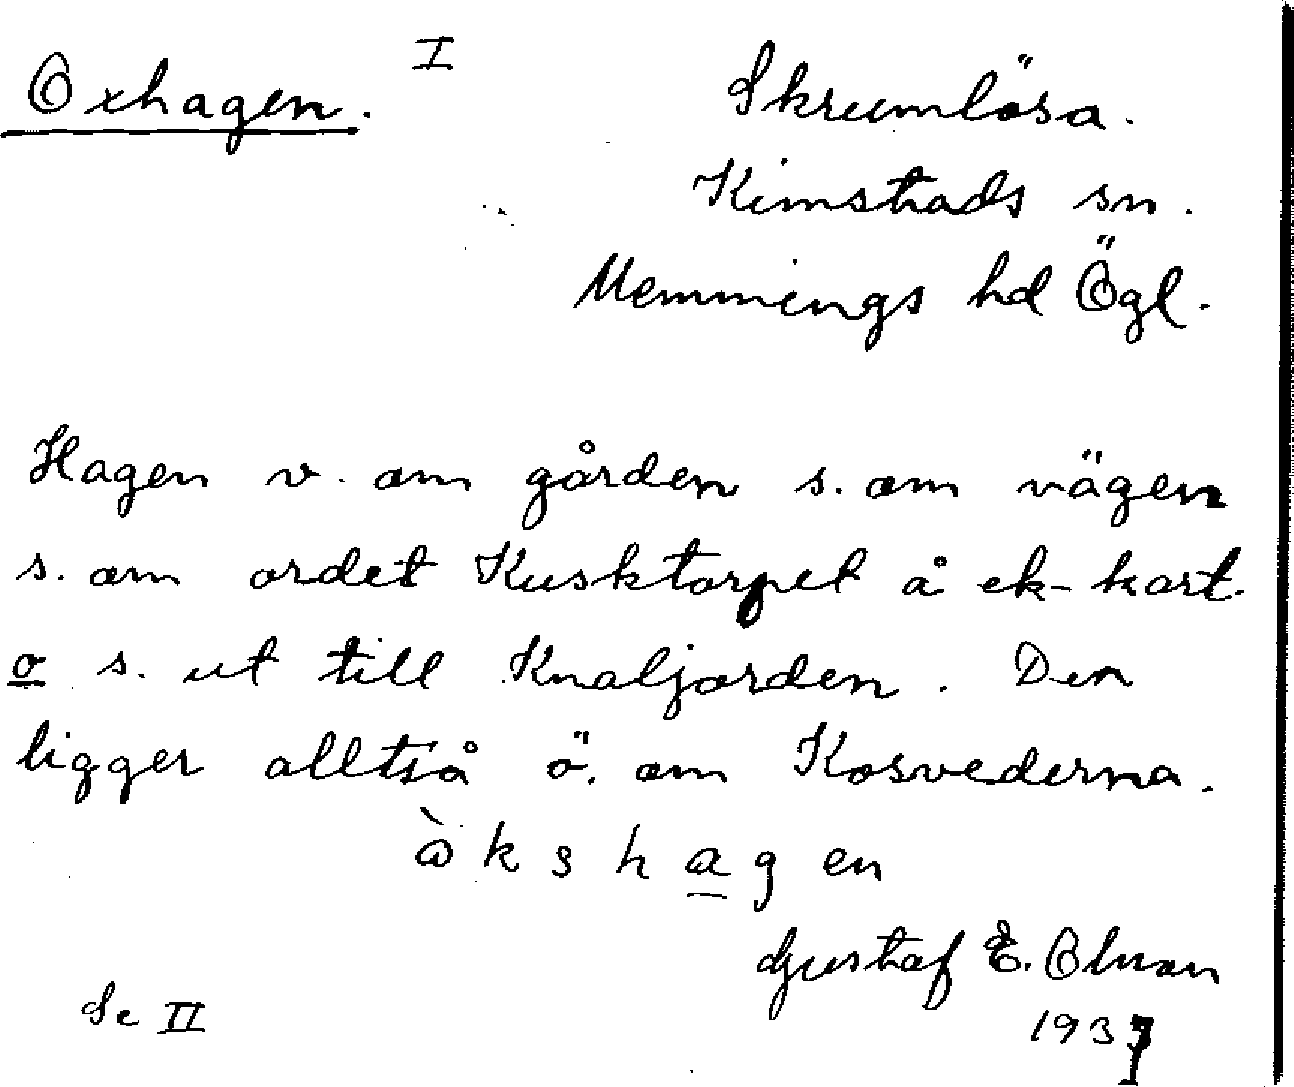 Oxhagen. I
Skrumlösa.
Kimstads sn.
Memmings hd Ögl.
Hagen v. om gården s. om vägen
s. om ordet Kusktorpet å ek-kart.
o s. ut till Knaljorden. Den
ligger alltså ö. om Kosvederna.
ò k s h a g en
Gustaf E. Olsson
Se II
1937